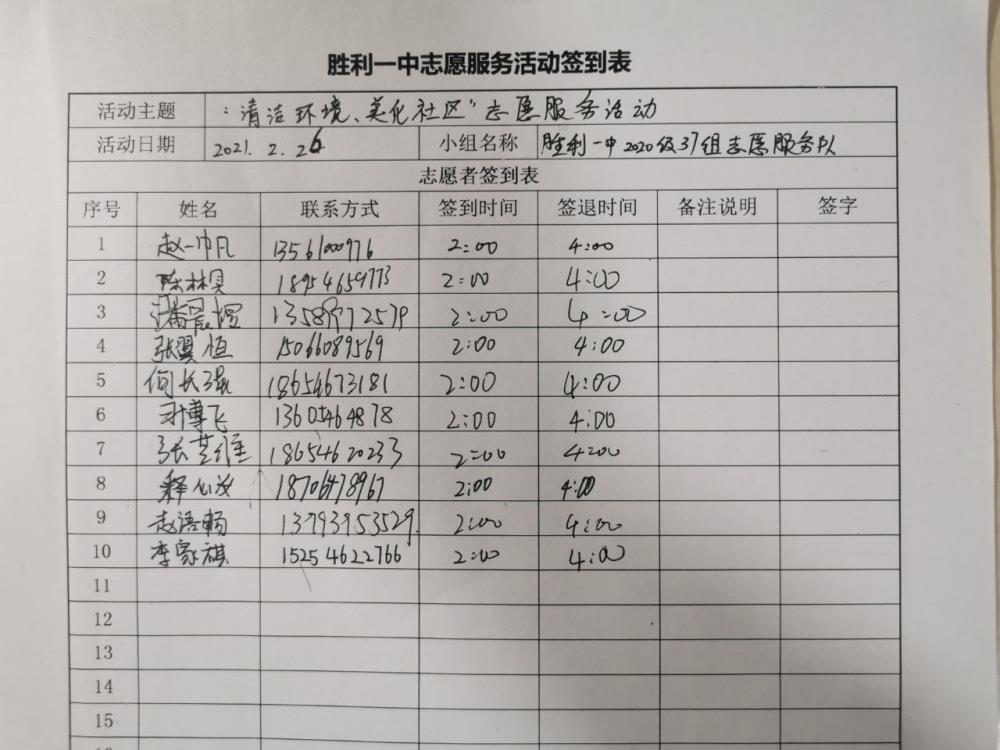 胜利一中志愿服务活动签到表
活动主题 :清洁环境、美化社区"志愿服务活动
活动日期 2021.2.26 小组名称 胜利一中2020级37组志愿服务队
志愿者签到表
序号 姓名 联系方式 签到时间 签退时间 备注说明 签字
1 赵一巾凡 2:00 4:00
2 陈林 18954659773 2:00 4:00
3 13589972579 2:00 4:00
4 张翼恒 15066089569 2:00 4:00
5 何长强 18654673181 2:00 4:00
6 博飞 13605464878 2:00 4:00
7 张 18654620233 2:00 4:00
8 释心汝 18706478967 2:00 4:00
9 赵浩畅 13793953529 2:00 4:00
10 李家祺 15254622766 2:00 4:00
11
12
13
14
15